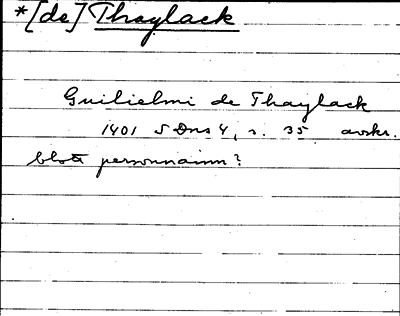 *[de] Thaylack
Guilielmi de Thaylack
1401 SDns 4, s. 35 avskr.
blott personnamn?